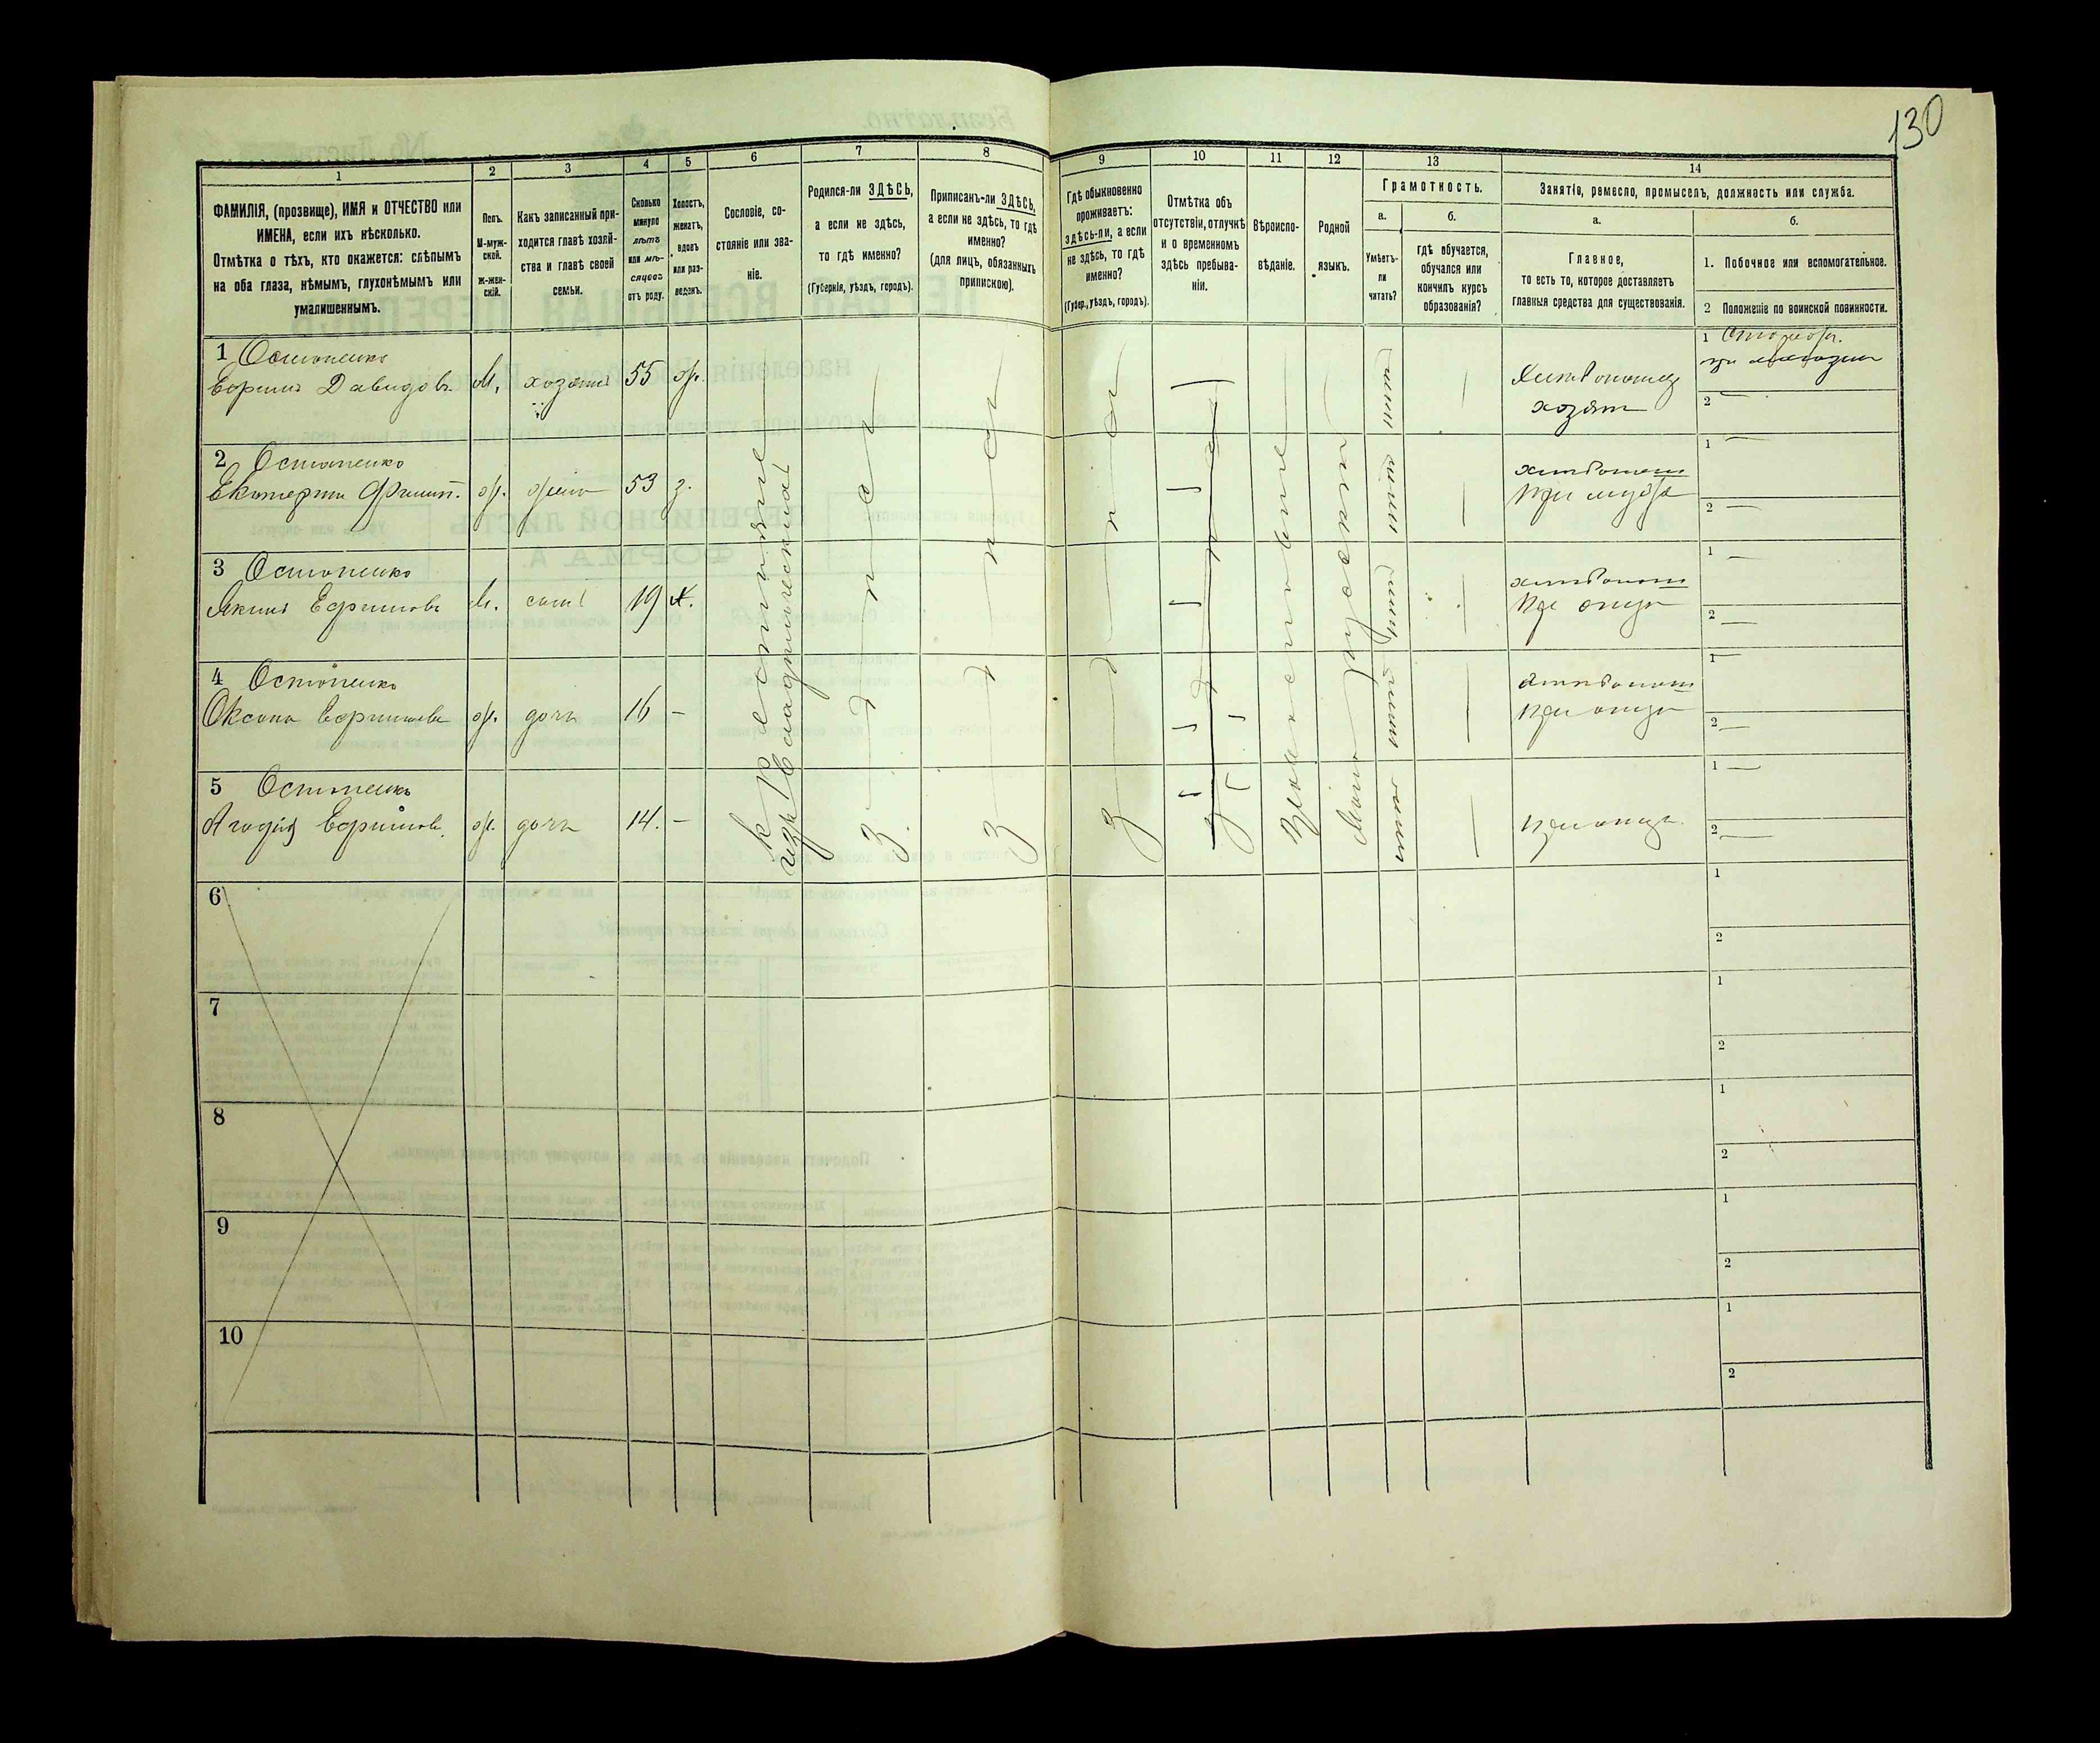 130
1
2
3
4
5
6
7
8
9
10
11
12
13
14
ФАМИЛІЯ, (прозвище), ИМЯ и ОТЧЕСТВО или
ИМЕНА, если ихъ нѣсколько.
Отмѣтка о тѣхъ, кто окажется: слѣпымъ
на оба глаза, нѣмымъ, глухонѣмымъ или
умалишеннымъ.
Полъ.
М-муж-
ской.
ж-жен-
скій.
Какъ записанный при-
ходится главѣ хозяй-
ства и главѣ своей
семьи.
Сколько
минуло
лѣтъ
или мѣ-
сяцевъ
отъ роду.
Холостъ,
женатъ,
вдовъ
или раз-
веденъ.
Сословіе, со-
стояніе или зва-
ніе.
Родился-ли ЗДѢСЬ,
а если не здѣсь,
то гдѣ именно?
(Губернія, уѣздъ, городъ).
Приписанъ-ли ЗДѢСЬ,
а если не здѣсь, то гдѣ
именно?
(для лицъ, обязанныхъ
припискою).
Гдѣ обыкновенно
проживаетъ:
здѣсь-ли, а если
не здѣсь, то гдѣ
именно?
(Губер., уѣздъ, городъ).
Отмѣтка объ
отсутствіи, отлучкѣ
и о временномъ
здѣсь пребыва-
ніи.
Вѣроиспо-
вѣданіе.
Родной
языкъ.
Грамотность.
а.
Умѣетъ-
ли
читать?
б.
гдѣ обучается,
обучался или
кончилъ курсъ
образованія?
Занятіе, ремесло, промыселъ, должность или служба.
а.
Главное,
то есть то, которое доставляетъ
главныя средства для существованія.
б.
1. Побочное или вспомогательное.
2 Положеніе по воинской повинности.
1 Остопенко
Ефимъ Давидовъ М. хозяинъ 55 ж.
Хлѣбопашец
хозяин
1
2
2 Остопенко
Екатерина Филип. ж. жена 53 з.
при мужѣ
1
2
3 Остопенко
Якимъ Ефимовъ М. сынъ 19 х.
при отцѣ
1
2
4 Остопенко
Оксана Ефимова ж. дочь 16 –
при отцѣ
1
2
5 Остопенко
Ефимов. ж. дочь 14. –
при отцѣ
1
2
Крестьяне
здесь
здесь
здесь
Православные
русскій
6
1
2
7
1
2
8
1
2
9
1
2
10
1
2